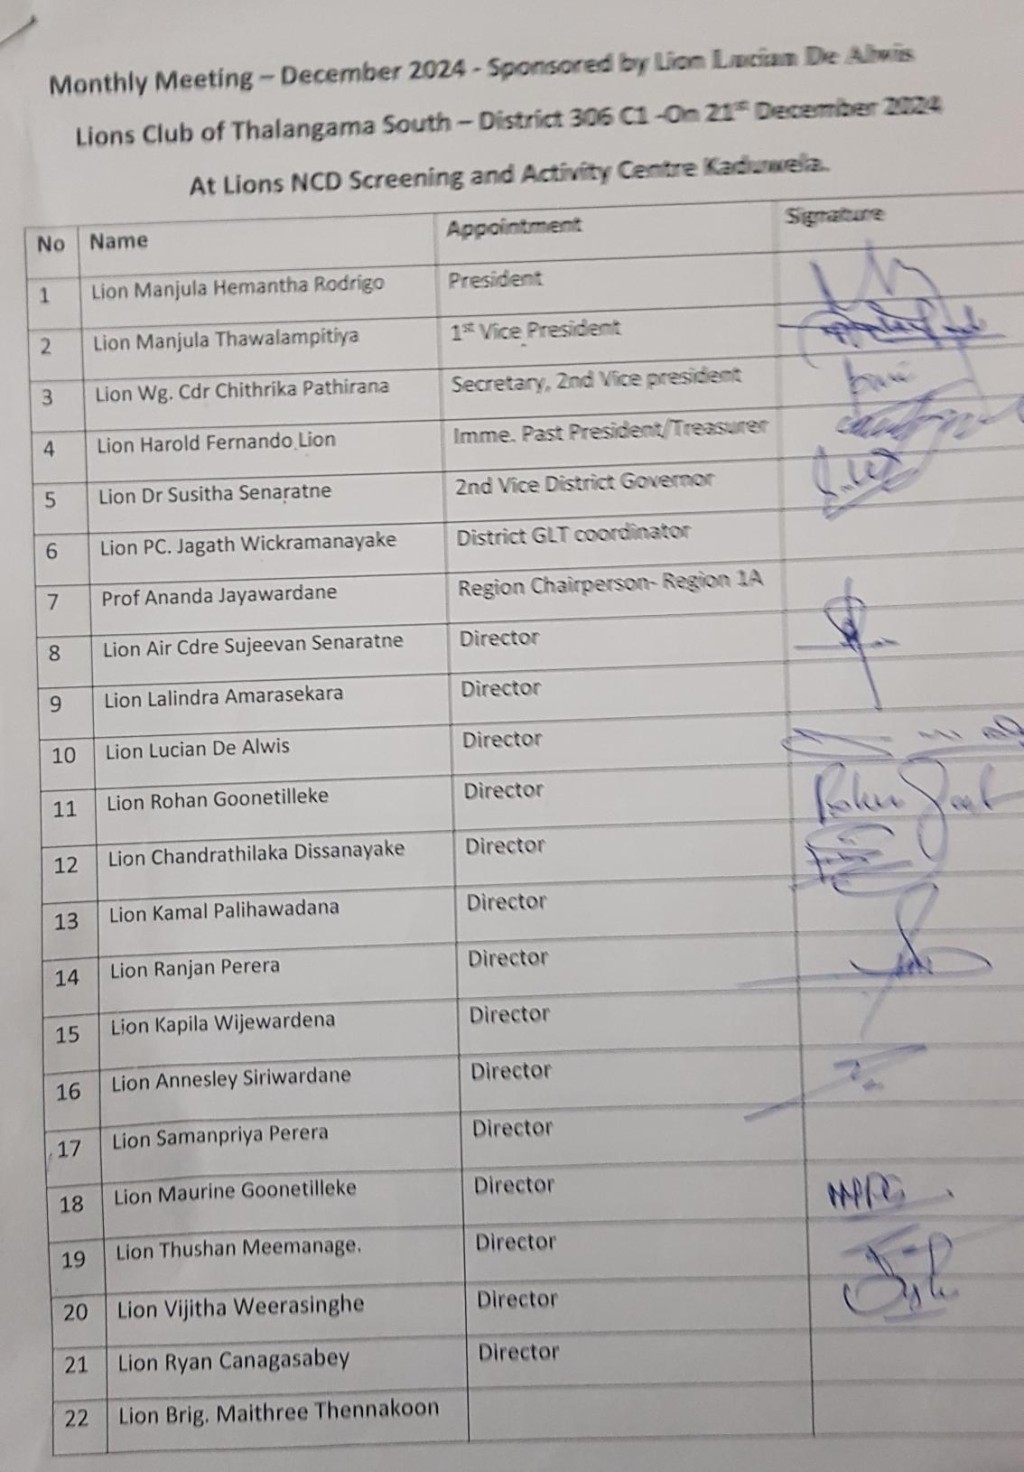 Monthly Meeting – December 2024 - Sponsored by Lion Lucian De Alwis
Lions Club of Thalangama South – District 306 C1 -On 21st December 2024
At Lions NCD Screening and Activity Centre Kaduwela.
No Name Appointment Signature
1 Lion Manjula Hemantha Rodrigo President
2 Lion Manjula Thawalampitiya 1st Vice President
3 Lion Wg. Cdr Chithrika Pathirana Secretary, 2nd Vice president
4 Lion Harold Fernando Lion Imme. Past President/Treasurer
5 Lion Dr Susitha Senaratne 2nd Vice District Governor
6 Lion PC. Jagath Wickramanayake District GLT coordinator
7 Prof Ananda Jayawardane Region Chairperson- Region 1A
8 Lion Air Cdre Sujeevan Senaratne Director
9 Lion Lalindra Amarasekara Director
10 Lion Lucian De Alwis Director
11 Lion Rohan Goonetilleke Director
12 Lion Chandrathilaka Dissanayake Director
13 Lion Kamal Palihawadana Director
14 Lion Ranjan Perera Director
15 Lion Kapila Wijewardena Director
16 Lion Annesley Siriwardane Director
17 Lion Samanpriya Perera Director
18 Lion Maurine Goonetilleke Director
19 Lion Thushan Meemanage. Director
20 Lion Vijitha Weerasinghe Director
21 Lion Ryan Canagasabey Director
22 Lion Brig. Maithree Thennakoon